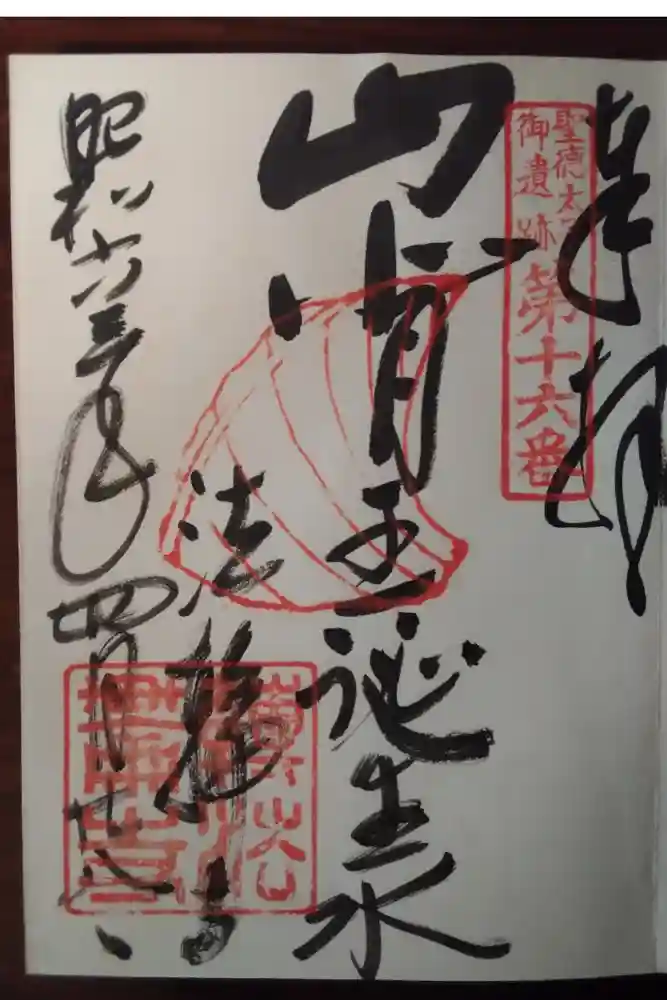 奉拝
聖徳太子
御遺跡第十六番
山背王誕生水
法輪寺
昭和六三年四月廿八日